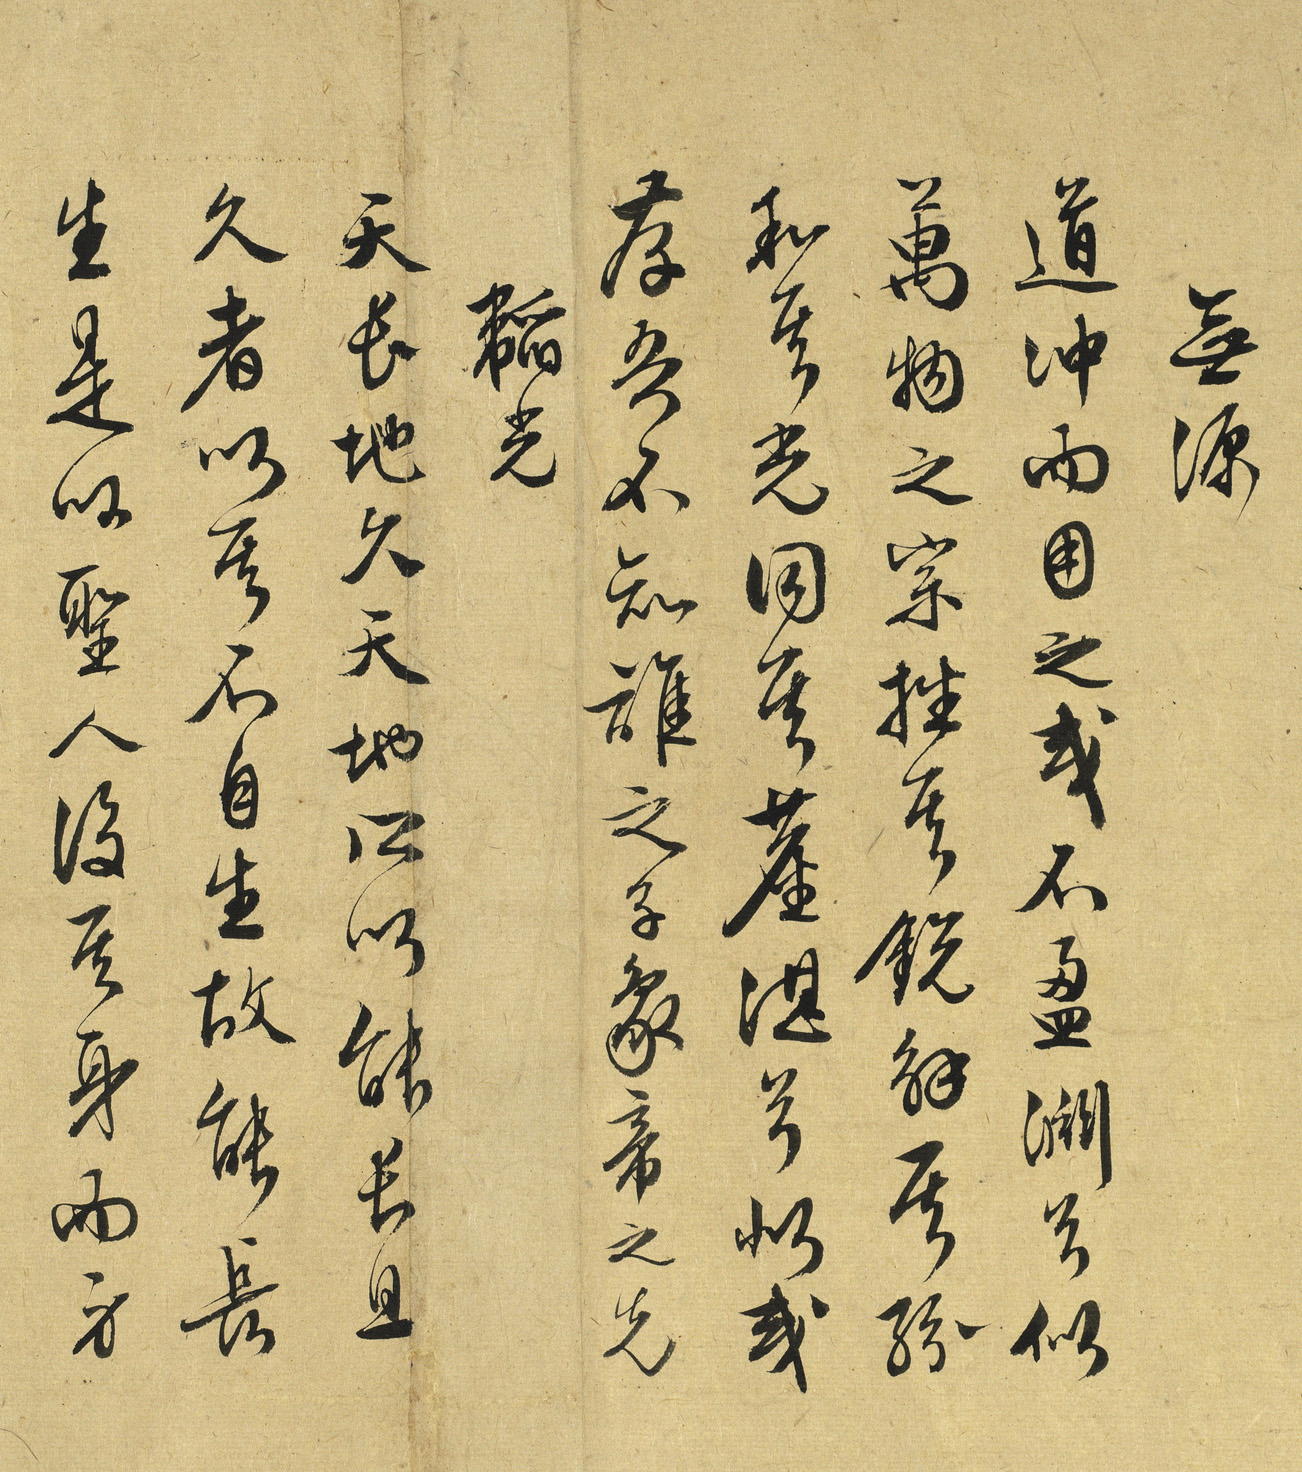 無源
道沖而用之或不盈淵兮似
萬物之宗挫其銳解其紛
和其光同其塵湛兮似或
存吾不知誰之子象帝之先
韜光
天長地久天地所以能長且
久者以其不自生故能長
生是以聖人後其身而身